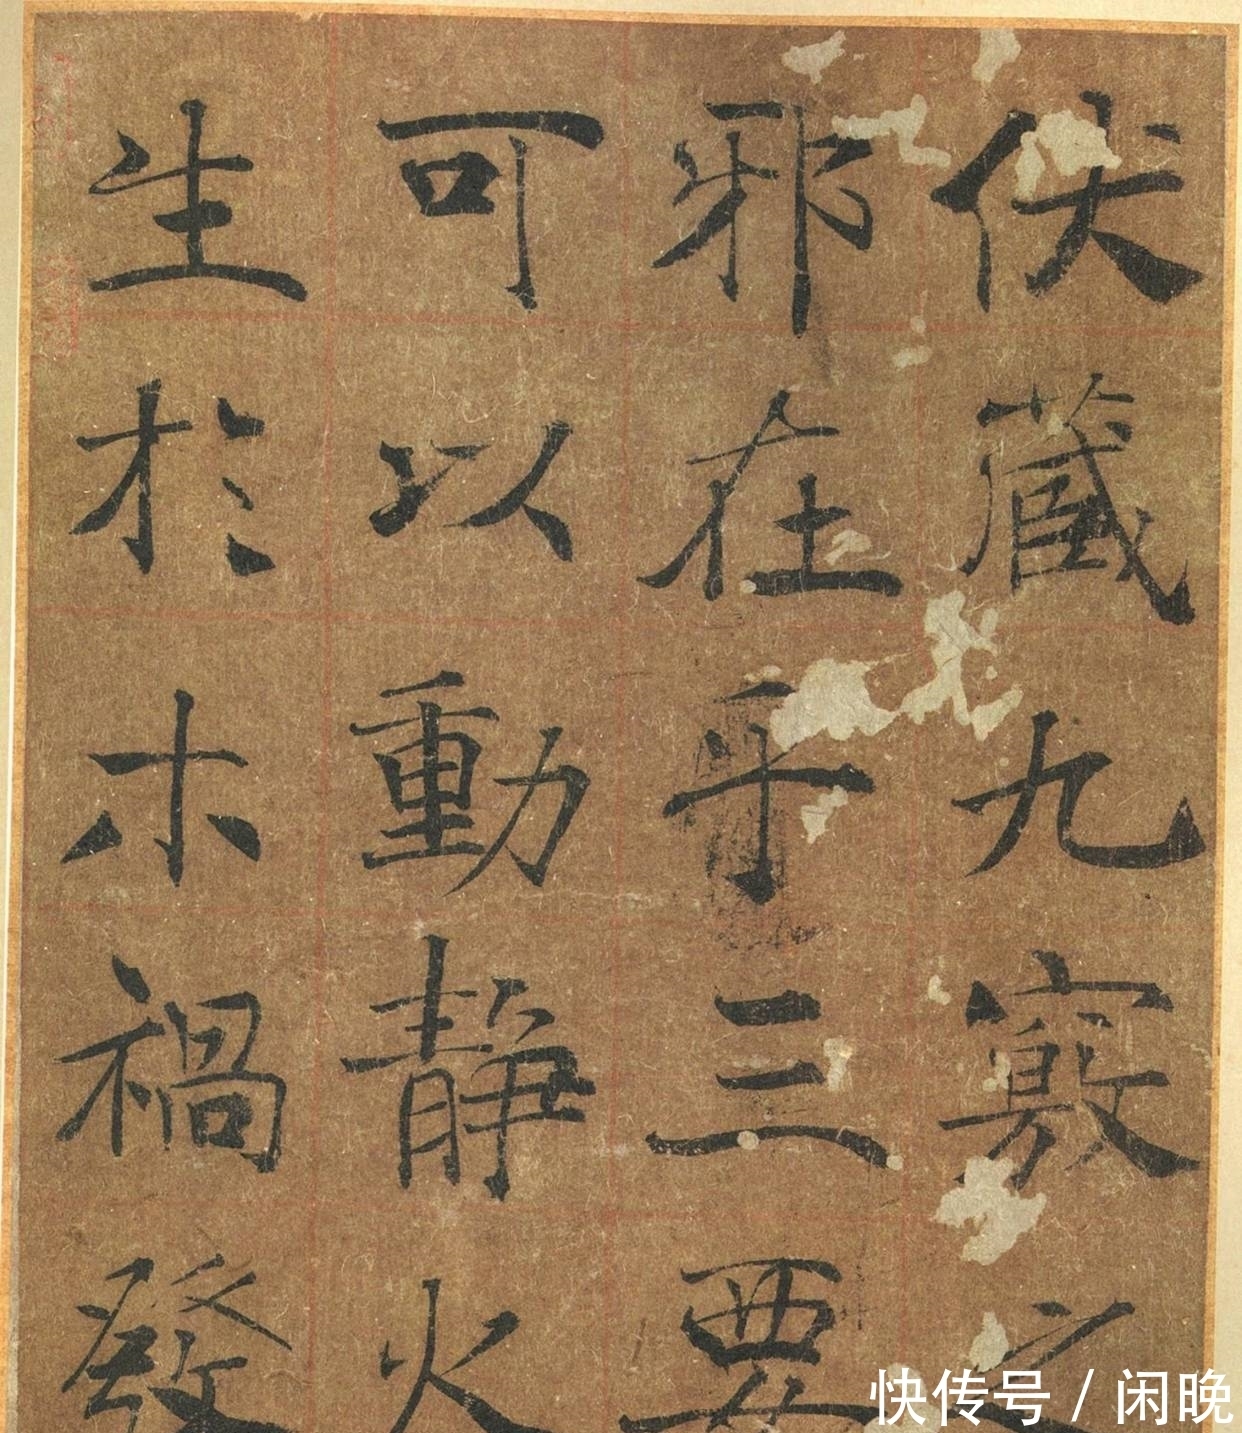 伏藏九竅之
邪在乎三要
可以動靜火
生於木禍發
快传号 / 闲晚